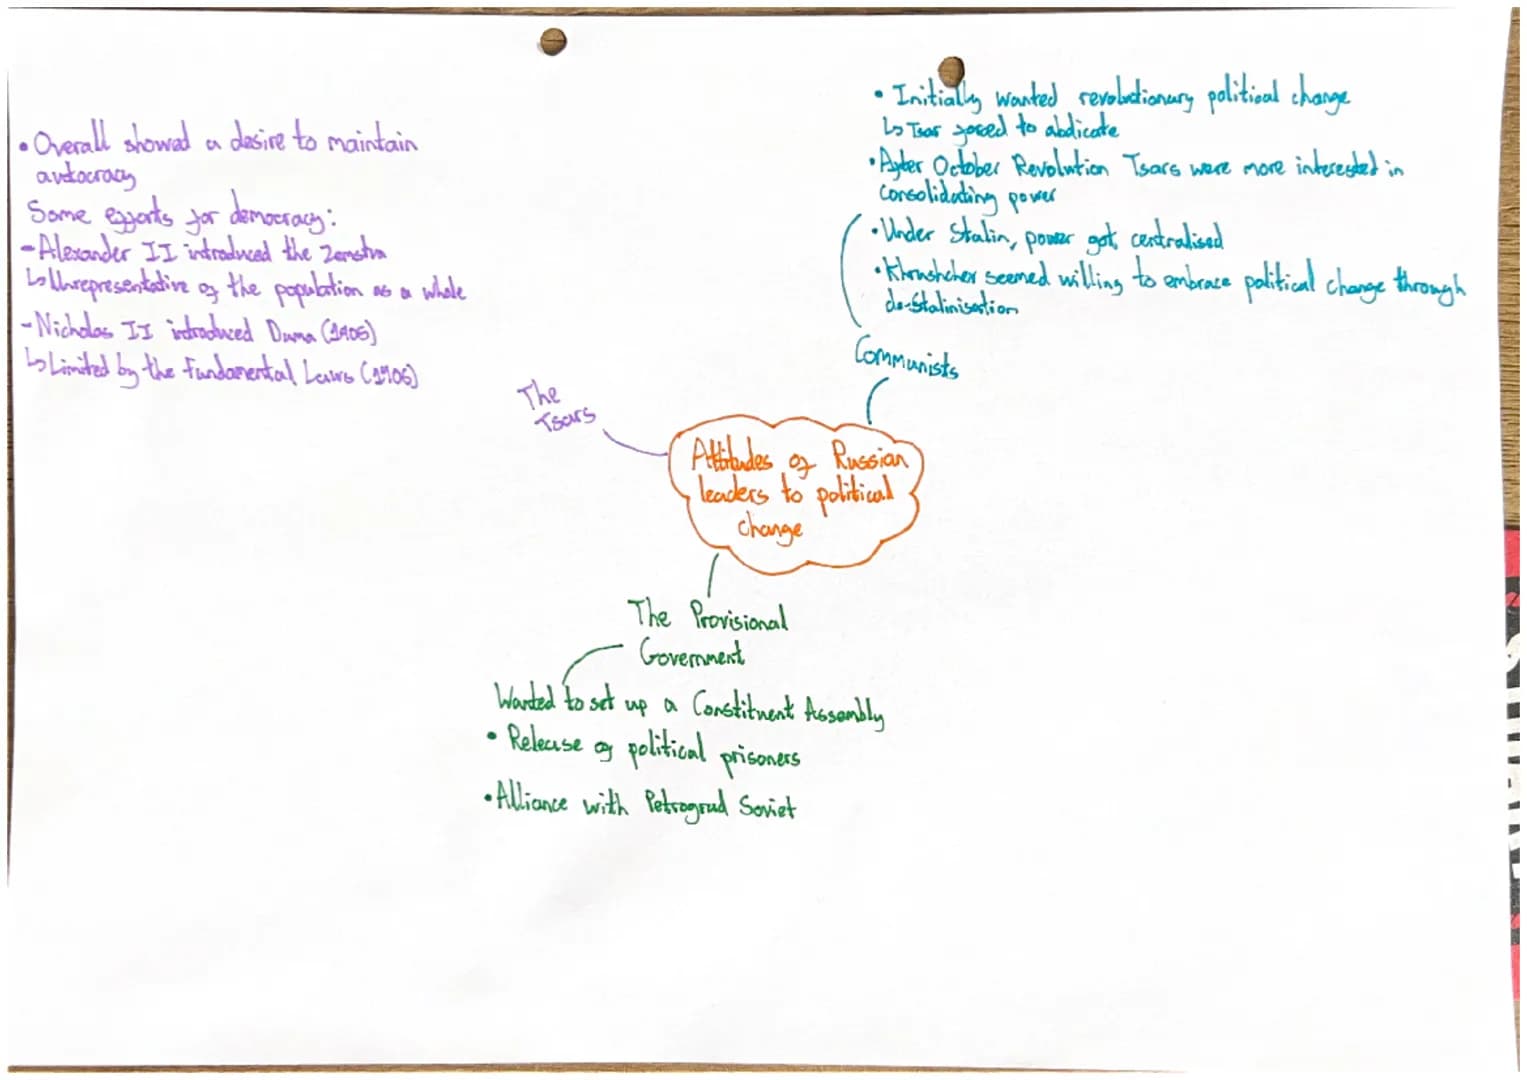 • Overall showed a desire to maintain
autocracy
Some efforts for democracy:
- Alexander II introduced the Zemstva
↳ Unrepresentative of the population as a whole
- Nicholas II introduced Duma (1905)
↳ Limited by the Fundamental Laws (1906)
The
Tsars
• Initially wanted revolutionary political change
↳ Tsar forced to abdicate
• After October Revolution Tsars were more interested in
consolidating power
• Under Stalin, power got centralised
• Khrushchev seemed willing to embrace political change through
de-Stalinisation
Communists
Attitudes of Russian
leaders to political
change
The Provisional
Government
Wanted to set up a Constituent Assembly
• Release of political prisoners
• Alliance with Petrograd Soviet